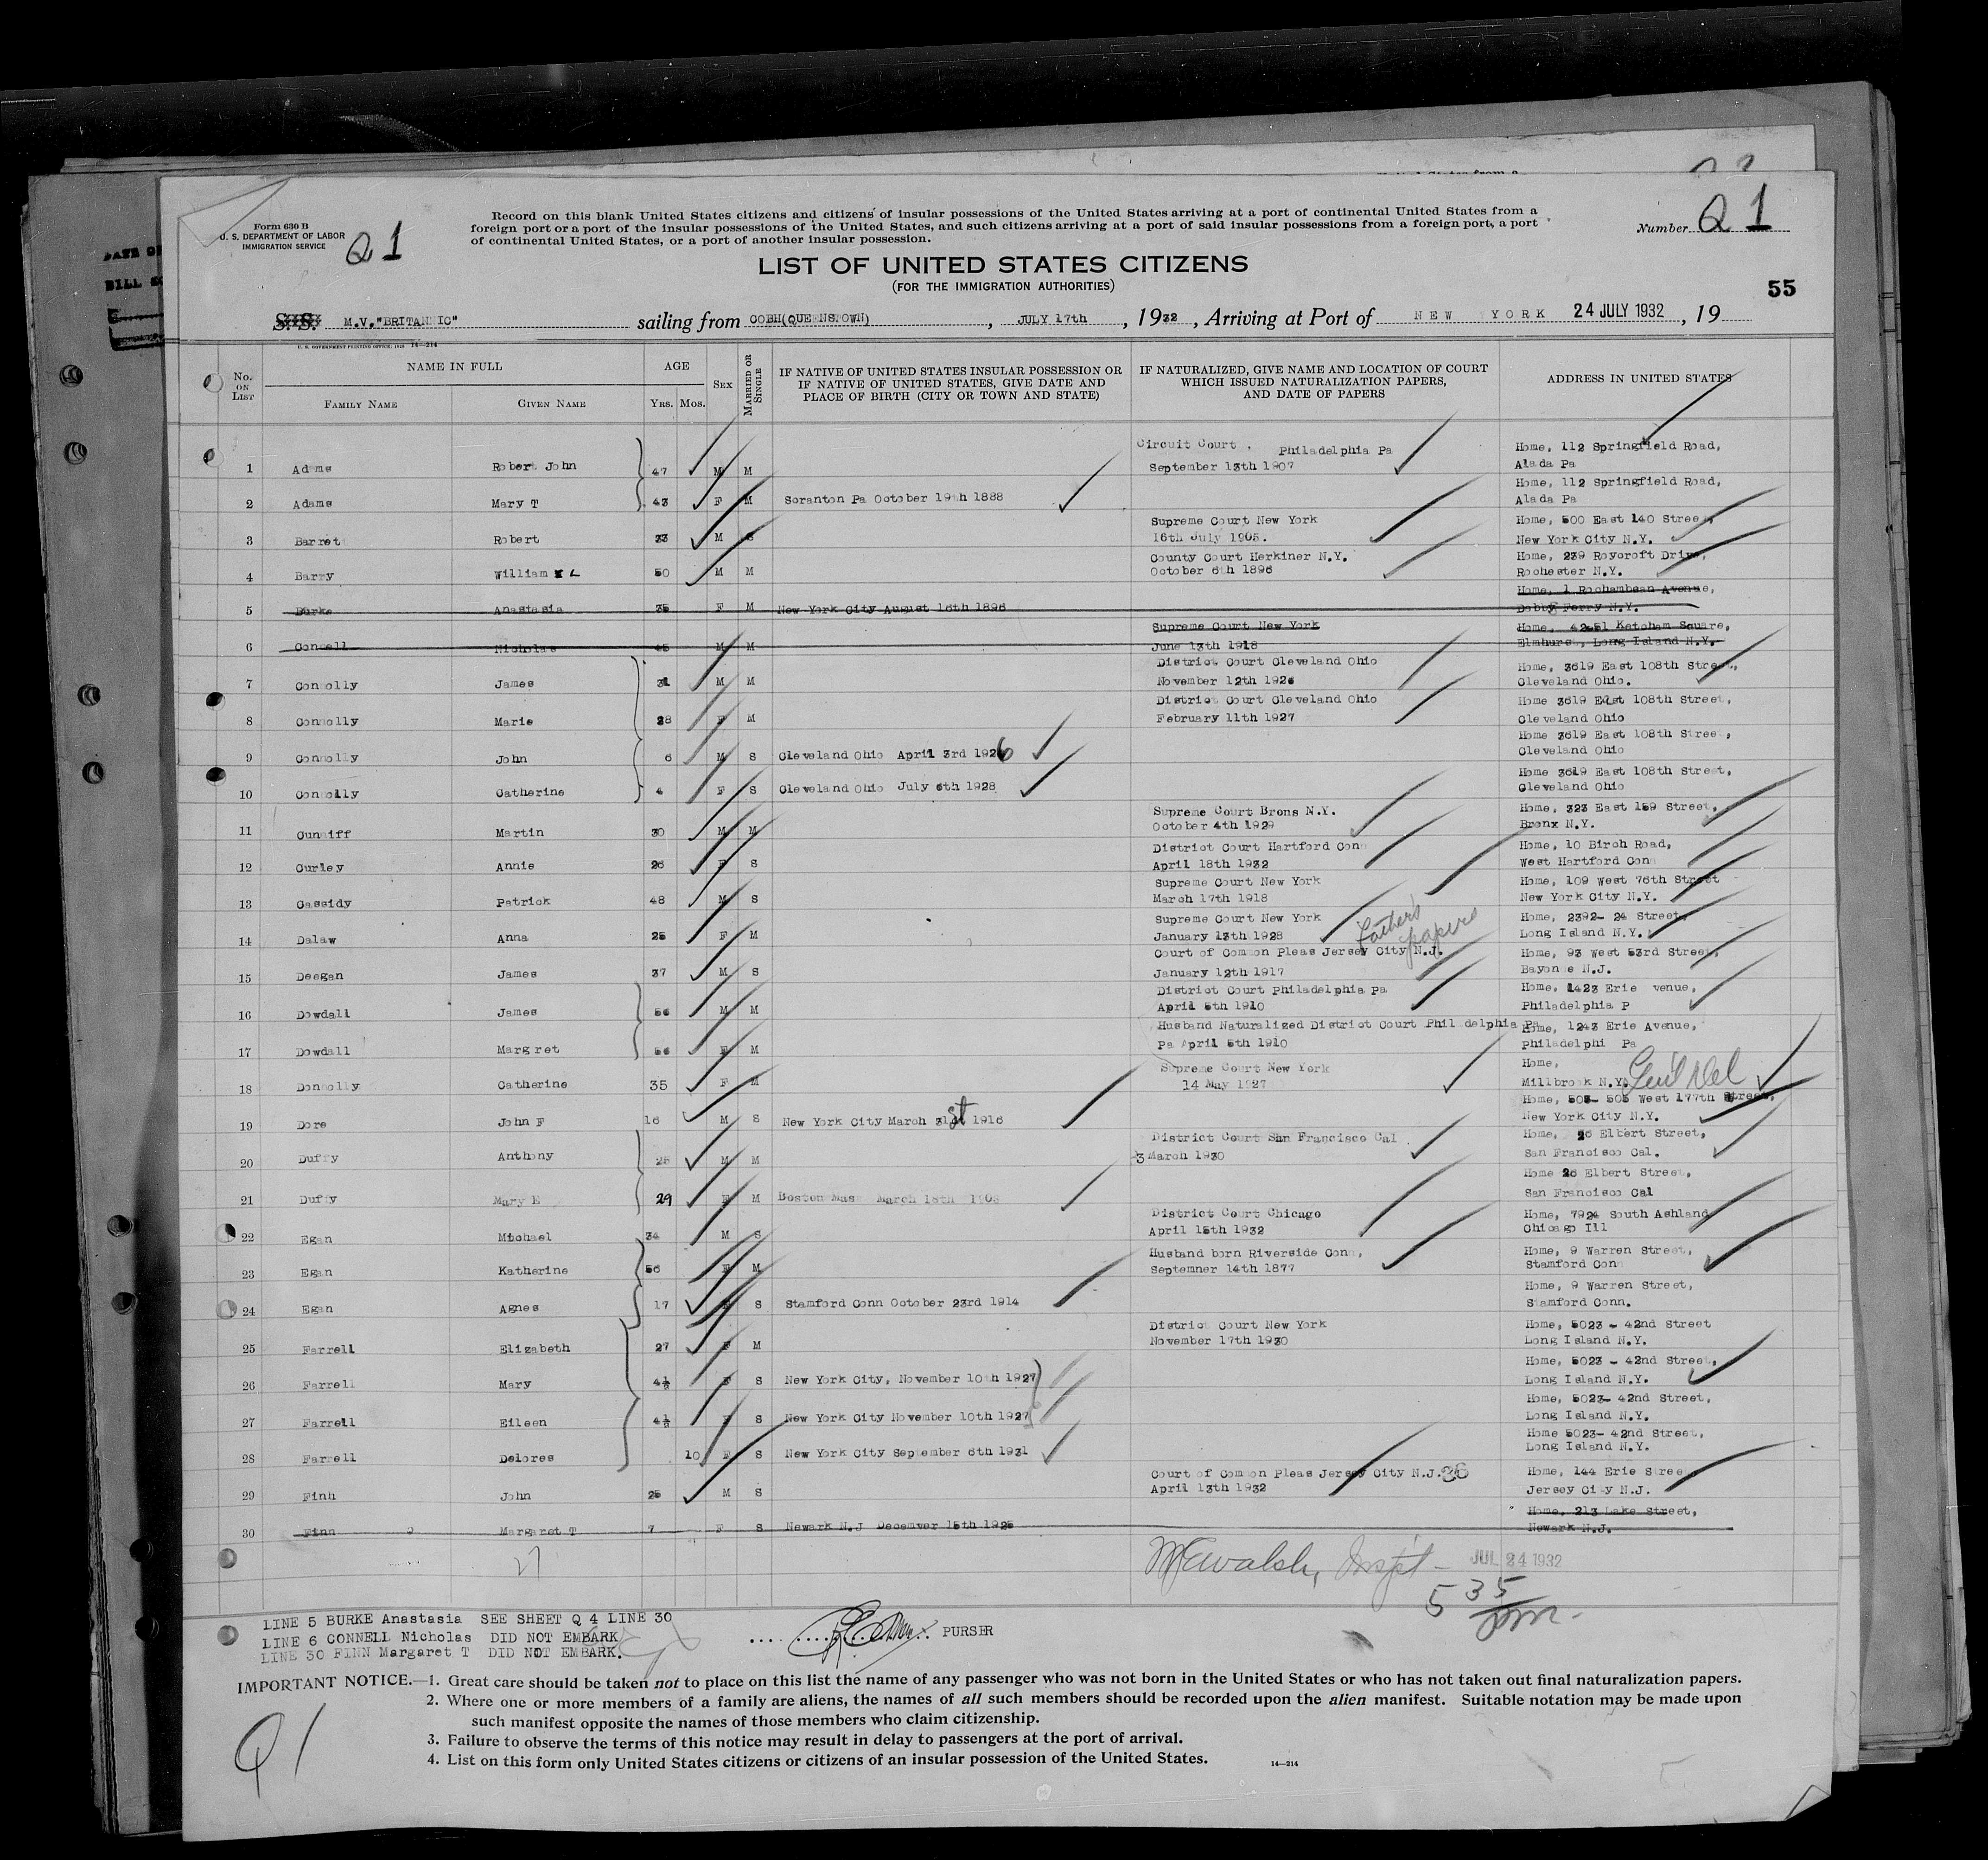 Form 630 B
U. S. DEPARTMENT OF LABOR
IMMIGRATION SERVICE
Q 1
Record on this blank United States citizens and citizens of insular possessions of the United States arriving at a port of continental United States from a
foreign port or a port of the insular possessions of the United States, and such citizens arriving at a port of said insular possessions from a foreign port, a port
of continental United States, or a port of another insular possession.
Number Q 1
LIST OF UNITED STATES CITIZENS
(FOR THE IMMIGRATION AUTHORITIES)
55
S. S. M.V."BRITANNIC" sailing from COBH(QUEENSTOWN), JULY 17th, 1932, Arriving at Port of NEW YORK 24 JULY 1932, 19
No. ON LIST
NAME IN FULL
FAMILY NAME GIVEN NAME
AGE
YRS. MOS.
SEX
MARRIED OR SINGLE
IF NATIVE OF UNITED STATES INSULAR POSSESSION OR
IF NATIVE OF UNITED STATES, GIVE DATE AND
PLACE OF BIRTH (CITY OR TOWN AND STATE)
IF NATURALIZED, GIVE NAME AND LOCATION OF COURT
WHICH ISSUED NATURALIZATION PAPERS,
AND DATE OF PAPERS
ADDRESS IN UNITED STATES
Circuit Court, Philadelphia Pa Home, 112 Springfield Road,
1 Adams Robert John 47 M M September 13th 1907 Alada Pa
Home, 112 Springfield Road,
2 Adams Mary T 43 F M Scranton Pa October 19th 1888 Alada Pa
Supreme Court New York Home, 500 East 140 Street,
3 Barret Robert 33 M S 16th July 1905. New York City N.Y.
County Court Herkiner N.Y. Home, 239 Roycroft Drive,
4 Barry William L 50 M M October 6th 1896 Rochester N.Y.
Home, 1 Rochambean Avenue,
5 Burke Anastasia 35 F M New York City August 16th 1896 Dobby Ferry N.Y.
Supreme Court New York Home, 4251 Ketcham Square,
6 Connell Nicholas 45 M M June 13th 1918 Elmhurst, Long Island N.Y.
District Court Cleveland Ohio Home, 3619 East 108th Street,
7 Connolly James 31 M M November 12th 1926 Cleveland Ohio.
District Court Cleveland Ohio Home 3619 East 108th Street,
8 Connolly Marie 28 F M February 11th 1927 Cleveland Ohio
Home 3619 East 108th Street,
9 Connolly John 6 M S Cleveland Ohio April 3rd 1926 Cleveland Ohio
Home 3619 East 108th Street,
10 Connolly Catherine 4 F S Cleveland Ohio July 6th 1928 Cleveland Ohio
Supreme Court Brons N.Y. Home, 323 East 159 Street,
11 Cunniff Martin 30 M M October 4th 1929 Bronx N.Y.
District Court Hartford Conn Home, 10 Birch Road,
12 Curley Annie 26 F S April 18th 1932 West Hartford Conn
Supreme Court New York Home, 109 West 76th Street
13 Cassidy Patrick 48 M S March 17th 1918 New York City N.Y.
Supreme Court New York Father's papers Home, 2392- 24 Street,
14 Dalaw Anna 25 F M January 13th 1928 Long Island N.Y.
Court of Common Pleas Jersey City N.J. Home, 93 West 53rd Street,
15 Deegan James 37 M S January 12th 1917 Bayonne N.J.
District Court Philadelphia Pa Home, 1423 Erie venue,
16 Dowdall James 56 M M April 5th 1910 Philadelphia P
Husband Naturalized District Court Phil delphia Pa Home, 1243 Erie Avenue,
17 Dowdall Margret 56 F M Pa April 5th 1910 Philadelphi Pa
Supreme Court New York Home,
18 Donnolly Catherine 35 F M 14 May 1927 Millbrook N.Y. Gen'l Del
Home, 503- 505 West 177th Street,
19 Dore John F 16 M S New York City March 31st 1916 New York City N.Y.
District Court San Francisco Cal Home, 26 Elbert Street,
20 Duffy Anthony 28 M M 3 March 1930 San Francisco Cal.
Home 26 Elbert Street,
21 Duffy Mary E 29 F M Boston Mass March 18th 1903 San Francisco Cal
District Court Chicago Home, 7924 South Ashland
22 Egan Michael 34 M S April 15th 1932 Chicago Ill
Husband born Riverside Conn, Home, 9 Warren Street,
23 Egan Katherine 56 F M Septemner 14th 1877 Stamford Conn
Home, 9 Warren Street,
24 Egan Agnes 17 F S Stamford Conn October 23rd 1914 Stamford Conn.
District Court New York Home, 5023 - 42nd Street
25 Farrell Elizabeth 27 F M November 17th 1930 Long Island N.Y.
Home, 5023 - 42nd Street,
26 Farrell Mary 4½ F S New York City, November 10th 1927 Long Island N.Y.
Home, 5023- 42nd Street,
27 Farrell Eileen 4½ F S New York City November 10th 1927 Long Island N.Y.
Home 5023- 42nd Street,
28 Farrell Delores 10 F S New York City September 6th 1931 Long Island N.Y.
Court of Common Pleas Jersey City N.J. 36 Home, 144 Erie Street
29 Finn John 25 M S April 13th 1932 Jersey City N.J.
Home, 213 Lake Street,
30 Finn Margaret T 7 F S Newark N.J Decemver 15th 1925 Newark N.J.
27
Walsh, Inspt - JUL 24 1932
535
LINE 5 BURKE Anastasia SEE SHEET Q 4 LINE 30
LINE 6 CONNELL Nicholas DID NOT EMBARK
LINE 30 FINN Margaret T DID NOT EMBARK.
PURSER
IMPORTANT NOTICE.—1. Great care should be taken not to place on this list the name of any passenger who was not born in the United States or who has not taken out final naturalization papers.
2. Where one or more members of a family are aliens, the names of all such members should be recorded upon the alien manifest. Suitable notation may be made upon
such manifest opposite the names of those members who claim citizenship.
3. Failure to observe the terms of this notice may result in delay to passengers at the port of arrival.
4. List on this form only United States citizens or citizens of an insular possession of the United States.
14—214
Q 1